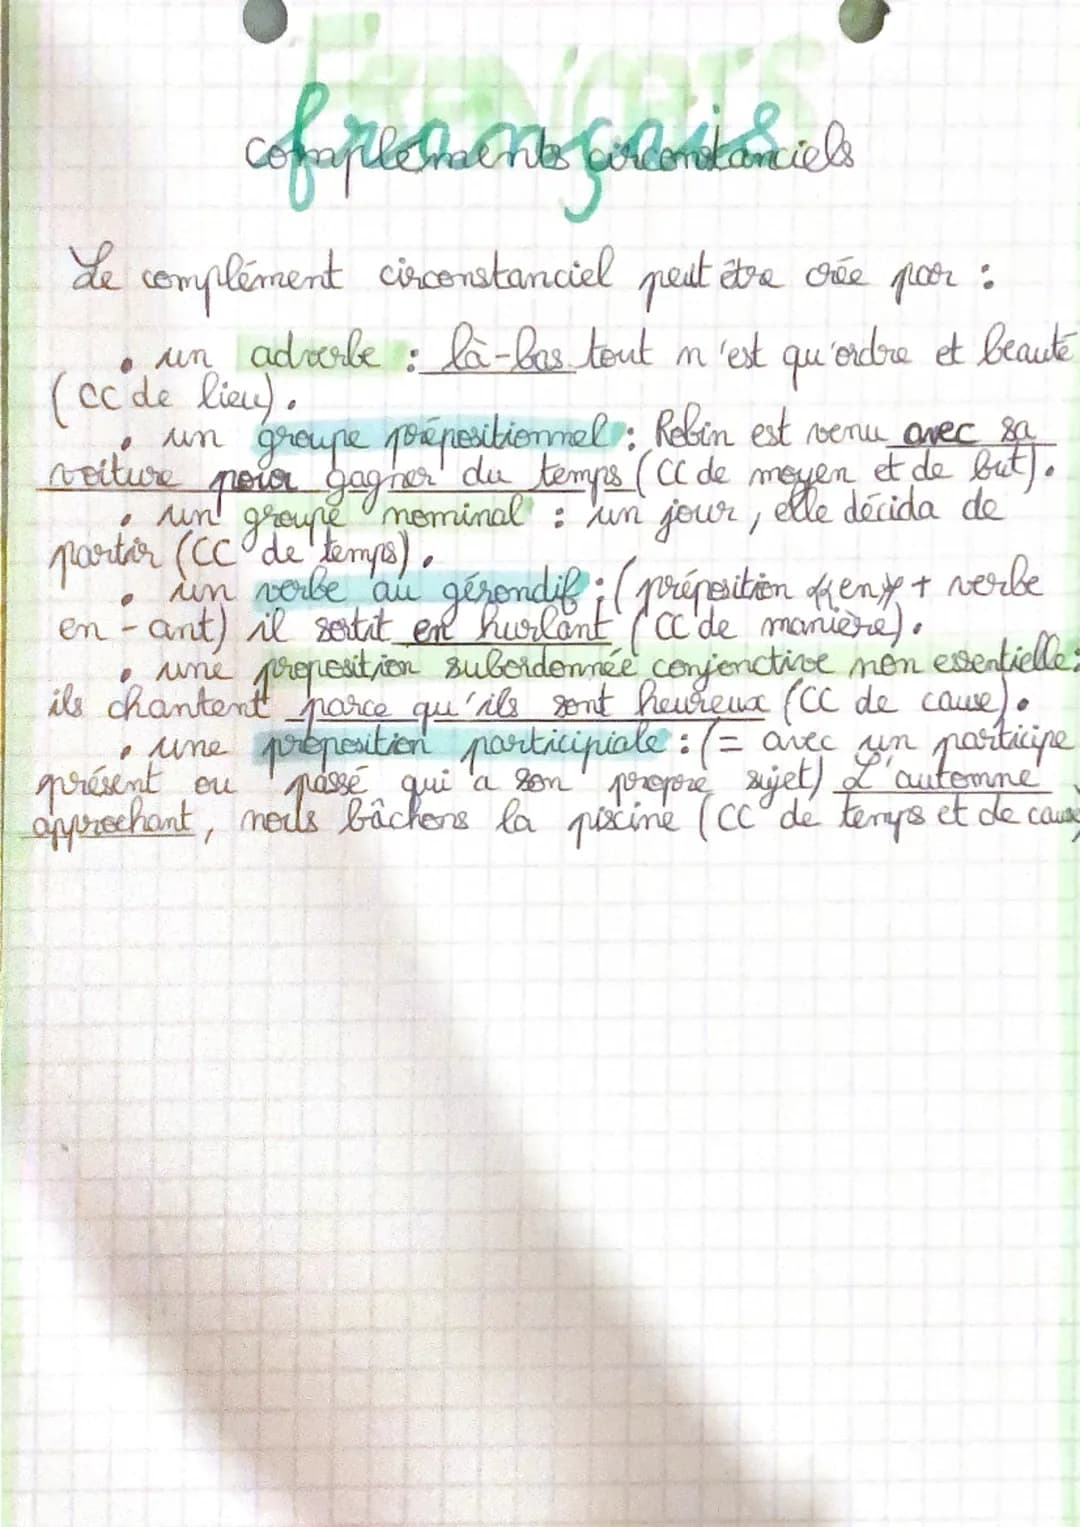 FRANÇAIS
français
compléments circonstanciels
Le complément circonstanciel peut être crée par :
• un adverbe : là-bas tout n'est qu'ordre et beauté
(CC de lieu).
• un groupe prépositionnel : Robin est venu avec sa
voiture pour gagner du temps (CC de moyen et de but).
• un groupe nominal : un jour, elle décida de
partir (CC de temps).
• un verbe au gérondif : (préposition «en» + verbe
en -ant) il sortit en hurlant (CC de manière).
• une proposition subordonnée conjonctive non essentielle :
ils chantent parce qu'ils sont heureux (CC de cause).
• une proposition participiale : (= avec un participe
présent ou passé qui a son propre sujet) L'automne
approchant, nous bâchons la piscine (CC de temps et de cause